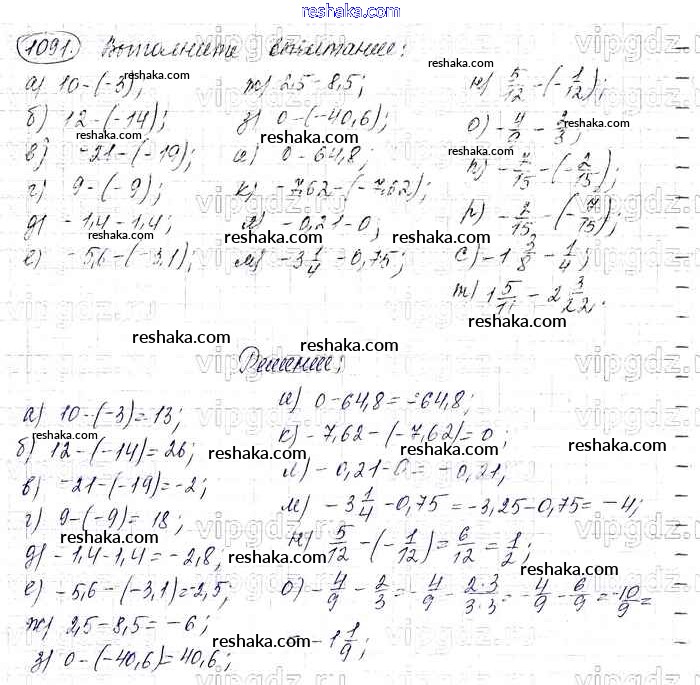 reshaka.com
1091. Выполните вычитание:
а) 10-(-3);
б) 12-(-14);
reshaka.com
в) -21-(-19);
г) 9-(-9);
reshaka.com
д) -1,4-1,4;
е) -5,6-(-3,1);
ж) 2,5-8,5;
з) 0-(-40,6);
reshaka.com
и) 0-64,8;
к) -7,62-(-7,62);
reshaka.com
л) -0,21-0;
м) -3 1/4 -0,75;
н) 5/12 -(-1/12);
о) -4/9 - 2/3;
reshaka.com
п) -7/15 -(-2/15);
р) -2/15 -(-7/15);
reshaka.com
с) -1 3/8 - 1/4;
т) 1 5/11 - 2 3/22.
reshaka.com
reshaka.com
Решение:
reshaka.com
а) 10-(-3)=13;
reshaka.com
б) 12-(-14)=26;
в) -21-(-19)=-2;
reshaka.com
г) 9-(-9)=18;
д) -1,4-1,4=-2,8;
reshaka.com
е) -5,6-(-3,1)=-2,5;
ж) 2,5-8,5=-6;
reshaka.com
з) 0-(-40,6)=40,6;
и) 0-64,8=-64,8;
к) -7,62-(-7,62)=0;
reshaka.com
л) -0,21-0=-0,21;
reshaka.com
м) -3 1/4 -0,75=-3,25-0,75=-4;
н) 5/12 -(-1/12)=6/12=1/2;
reshaka.com
о) -4/9 - 2/3=-4/9 - 2·3/3·3=-4/9 - 6/9=-10/9=
reshaka.com
=-1 1/9;
reshaka.com
vipgdz.ru